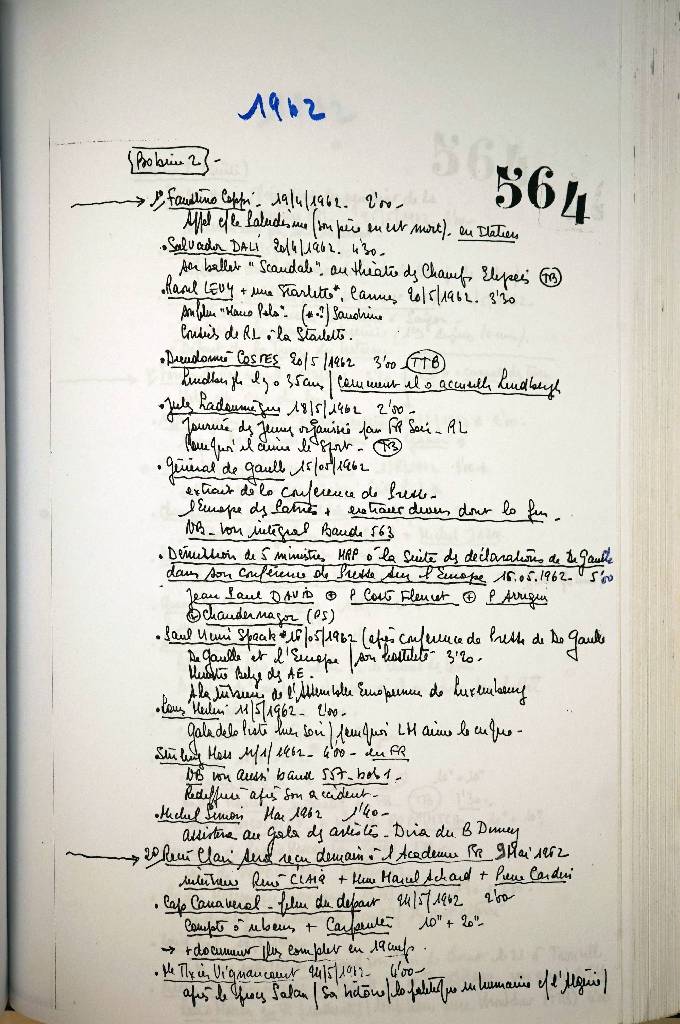 1962
564
Bobine 2 -
1° Faustino Coppi - 19/4/1962 - 2'00 -
Appel c/ le Paludisme (son père en est mort). en Italien
• Salvador DALI 20/4/1962. 4'30 -
son ballet "Scandale". au théâtre ds Champs Elysées (TB)
• Raoul LEVY + une Starlette*. Cannes 20/5/1962. 3'30
son film "Marco Polo". (*?) Sandrine
Conseils de RL à la Starlette.
• Dieudonné COSTES 20/5/1962 3'00 (TTB)
Lindbergh il y a 35 ans / comment il a accueilli Lindbergh
• Jules Ladoumègue 18/5/1962 2'00 -
Journée ds Jeunes organisée par FR Soir - RL
Pourquoi il aime le Sport - (TB)
• Général de Gaulle 15/05/1962
extrait de la conférence de Presse -
l'Europe ds Patries + extraits divers dont la fin -
NB - voir intégral Bande 563
• Démission de 5 ministres MRP à la suite ds déclarations de De Gaulle
dans son conférence de Presse sur l'Europe 16.05.1962 - 5'00
Jean Paul DAVID + P Coste Floret + P Arrighi
+ Chandernagor (PS)
• Paul Henri Spaak * 16/05/1962 (après conférence de Presse de De Gaulle
De Gaulle et l'Europe / son hostilité 3'20 -
Ministre Belge ds AE -
A la tribune de l'Assemblée Européenne de Luxembourg
• Louis Merlin 11/5/1962 - 2'00 -
Gala de la Piste hier soir / pourquoi LM aime le cirque -
Stirling Moss 11/1/1962 - 4'00 - en FR
NB voir aussi band 557 - bob 1 -
Rediffusé après son accident -
• Michel Simon Mai 1962 1'40 -
assistera au Gala ds artistes -
2° René Clair sera reçu demain à l'Académie FR 9 Mai 1962
interview René CLAIR + Mme Marcel Achard + Pierre Cardin
• Cap Canaveral - film du départ 24/5/1962 2'00
Compte à rebours + Carpenter 10" + 20" -
→ + document plus complet en 19 cm/s.
• Me Tixier Vignancourt 24/5/1962 - 4'00 -
après le procès Salan / Sa victoire / la politique inhumaine c/ l'Algérie /